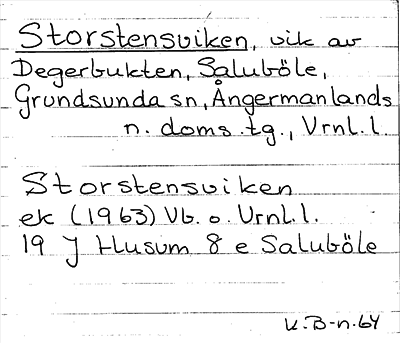 Storstensviken, vik av
Degerbukten, Saluböle,
Grundsunda sn, Ångermanlands
n. doms.tg., Vrnl.l.
Storstensviken
ek (1963) Vb. o. Vrnl.l.
19 J Husum 8 e Saluböle
K.B-n.64